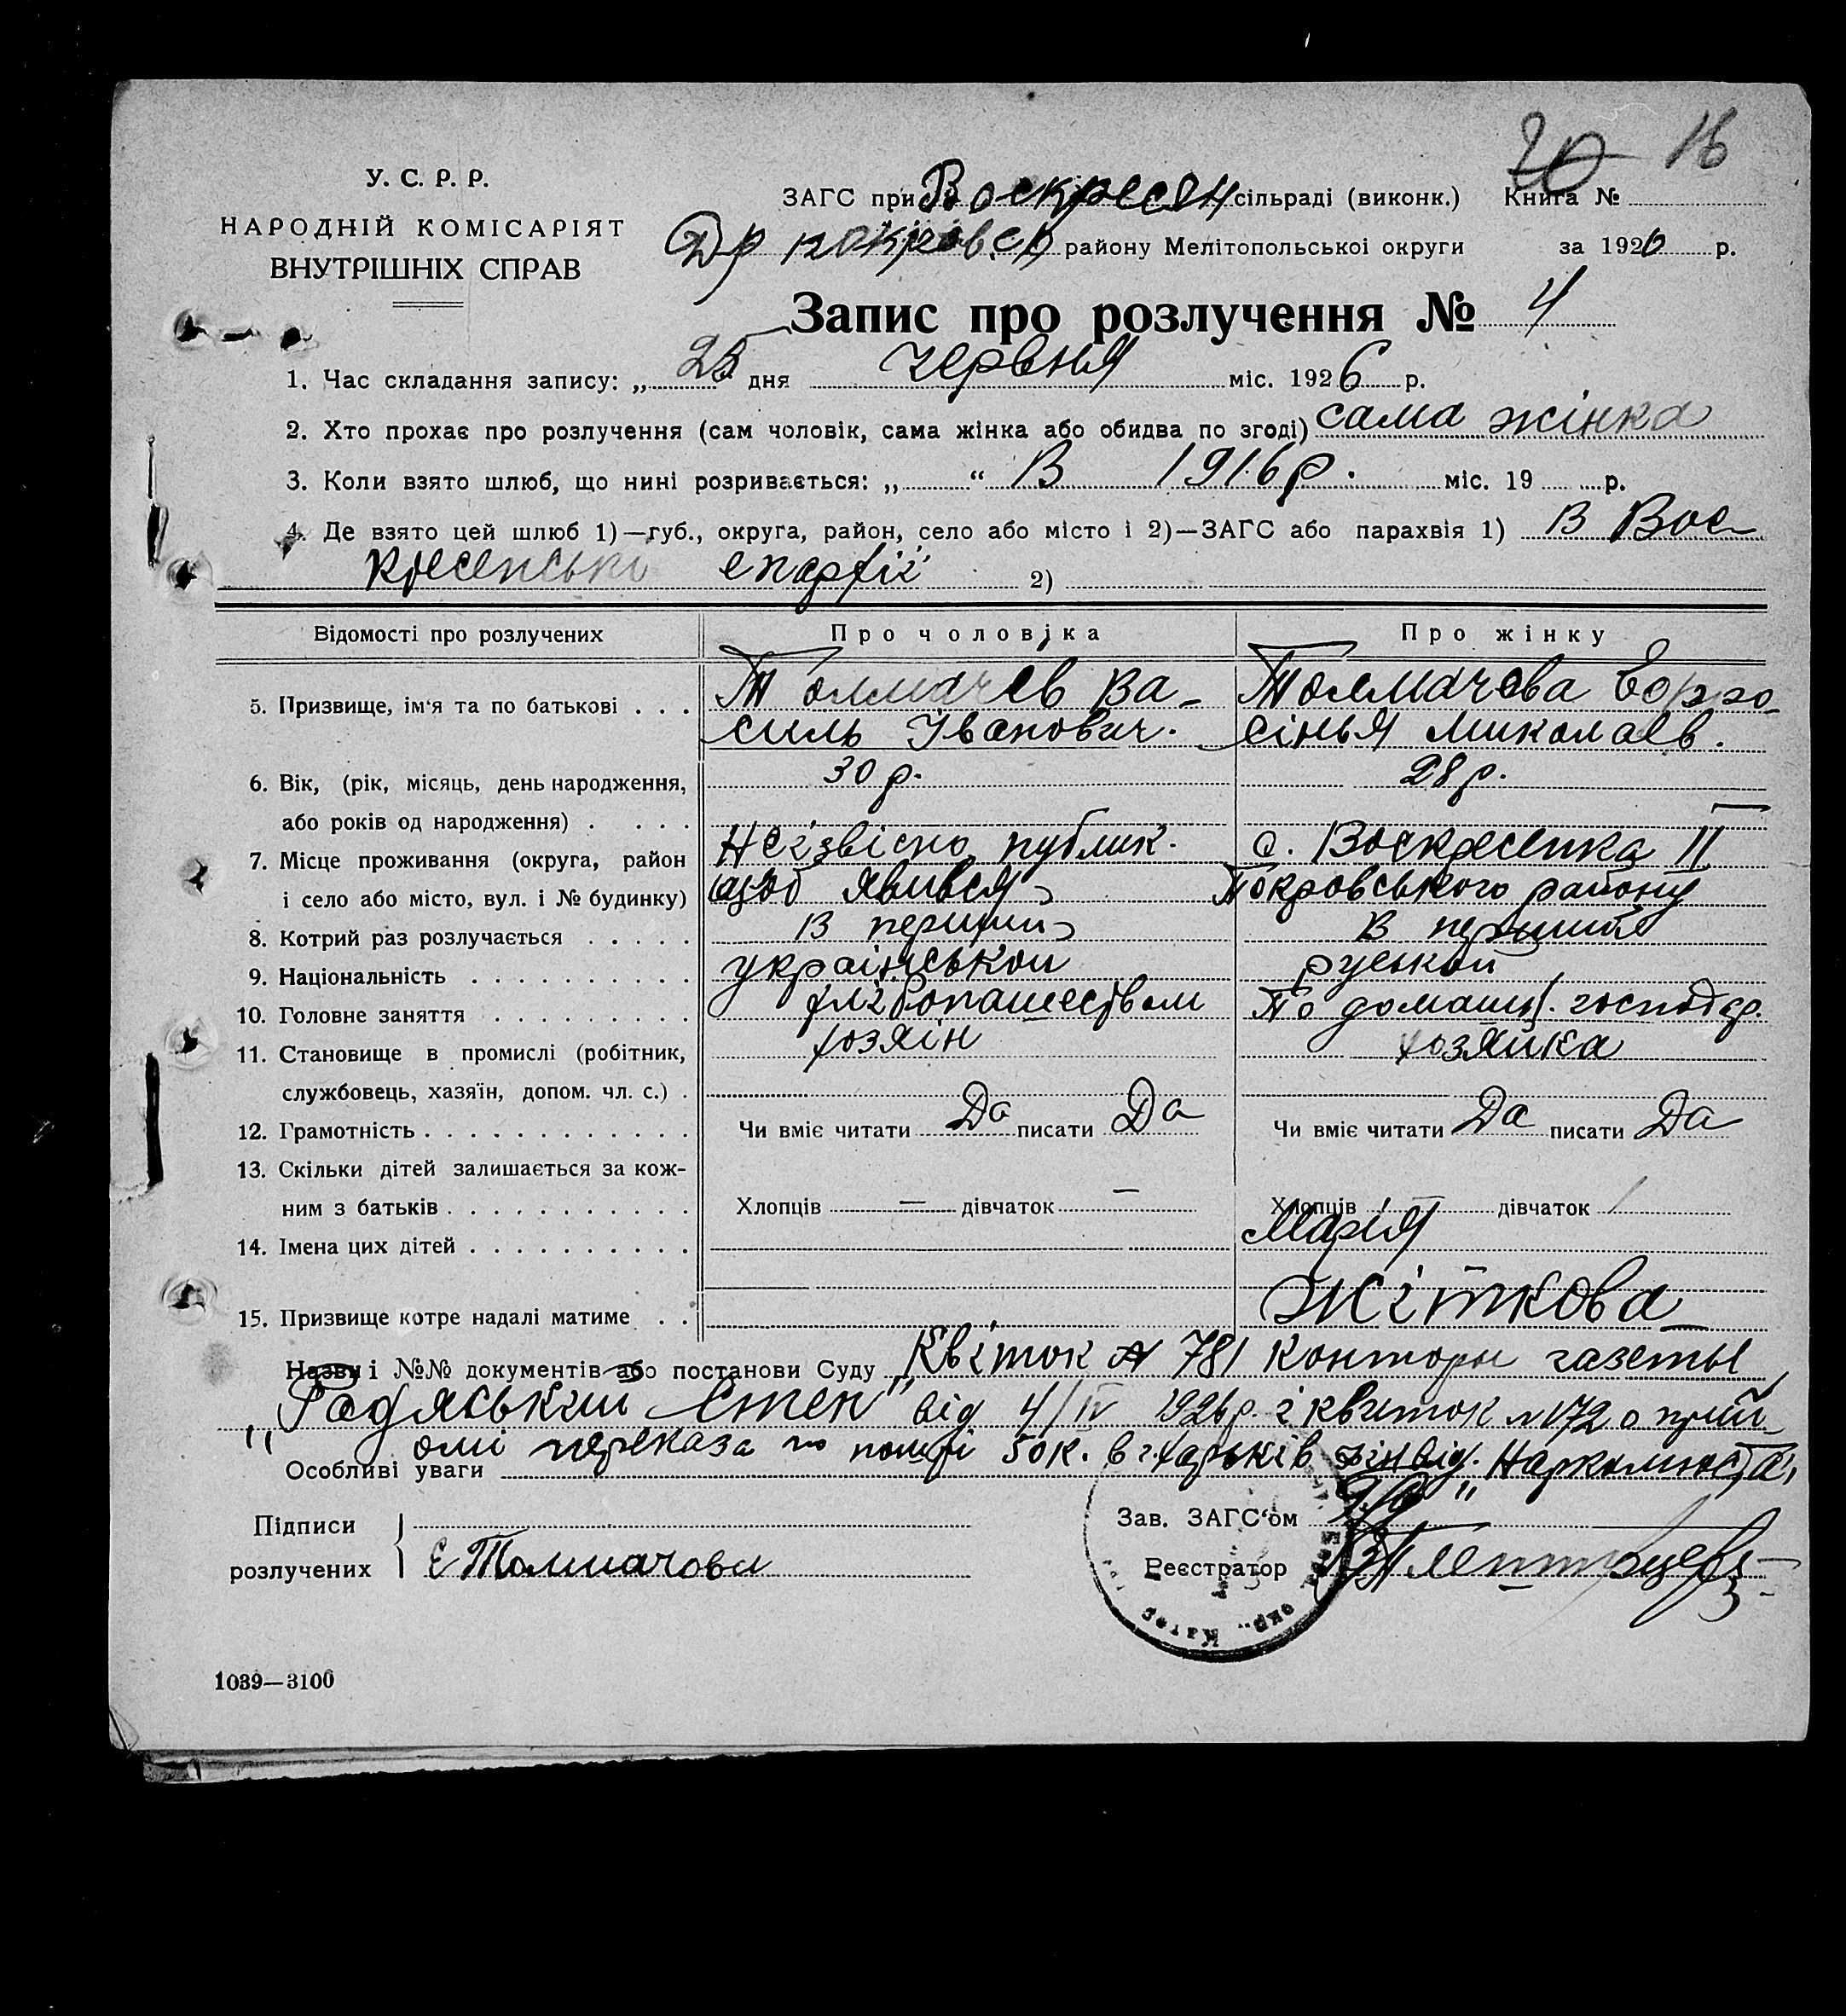 20 16
У. С. Р. Р.
НАРОДНІЙ КОМІСАРІЯТ
ВНУТРІШНІХ СПРАВ
ЗАГС при Воскресен сільраді (виконк.) Книга №
покровск району Мелітопольської округи за 1926 р.
Запис про розлучення № 4
1. Час складання запису: „ 25 дня червня міс. 1926 р.
2. Хто прохає про розлучення (сам чоловік, сама жінка або обидва по згоді) сама жінка
3. Коли взято шлюб, що нині розривається: „ “ В 1916 р. міс. 19 р.
4. Де взято цей шлюб 1)—губ., округа, район, село або місто і 2)—ЗАГС або парахвія 1) В Вос
кресенські епархії 2)
Відомості про розлучених Про чоловіка Про жінку
5. Призвище, ім‘я та по батькові . . . Толмачев Ва- Толмачева Ефро-
силь Іванович. сінья Миколаев.
6. Вік, (рік, місяць, день народження, 30 р. 28 р.
або років од народження) . . . .
7. Місце проживання (округа, район Неізвісно публик. с. Воскресенка II
і село або місто, вул. і № будинку) щоб явився Покровського району
8. Котрий раз розлучається . . . . . В перший В перший
9. Національність . . . . . . . . . . українськой руськой
10. Головне заняття . . . . . . . . . хліборашеством По домашн. господар.
11. Становище в промислі (робітник, хозяін хозяйка
службовець, хазяїн, допом. чл. с.) .
12. Грамотність . . . . . . . . . . . . Чи вміє читати Да писати Да Чи вміє читати Да писати Да
13. Скільки дітей залишається за кож-
ним з батьків . . . . . . . . . . . Хлопців — дівчаток — Хлопців — дівчаток 1
14. Імена цих дітей . . . . . . . . . . Марія
15. Призвище котре надалі матиме . . Жіткова
Назви і №№ документів або постанови Суду Квіток № 781 конторы газеты
„Радяський Степ“ від 4/IV 1926 р. і квиток № 172 о прий
омі переказа по пошті 50 к. в г. Харьків Наркомюста
Особливі уваги
Підписи
розлучених Е Толмачова
Зав. ЗАГС‘ом
Реєстратор
1039—3100